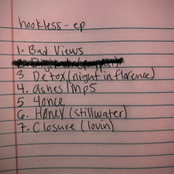 hookless - ep
1. Bad Views
3 Detox (night in florence)
4. Ashes / Mp5
5 4once
6. HONEY (stillwater)
7. Closure (lovin)